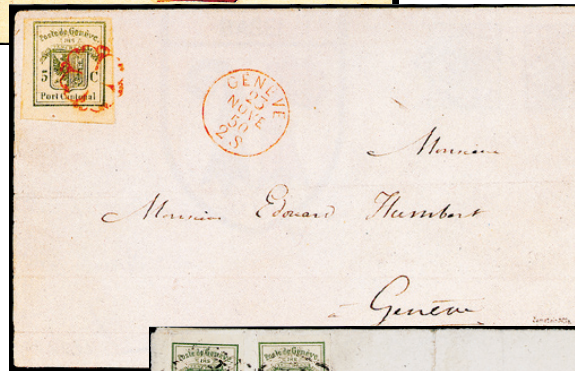 Poste de Genève
5 C
Port Cantonal
GENÈVE
23
NOVE
50
2 S
Monsieur
Monsieur Edouard Humbert
à Genève
Poste de Genève
Poste de Genève